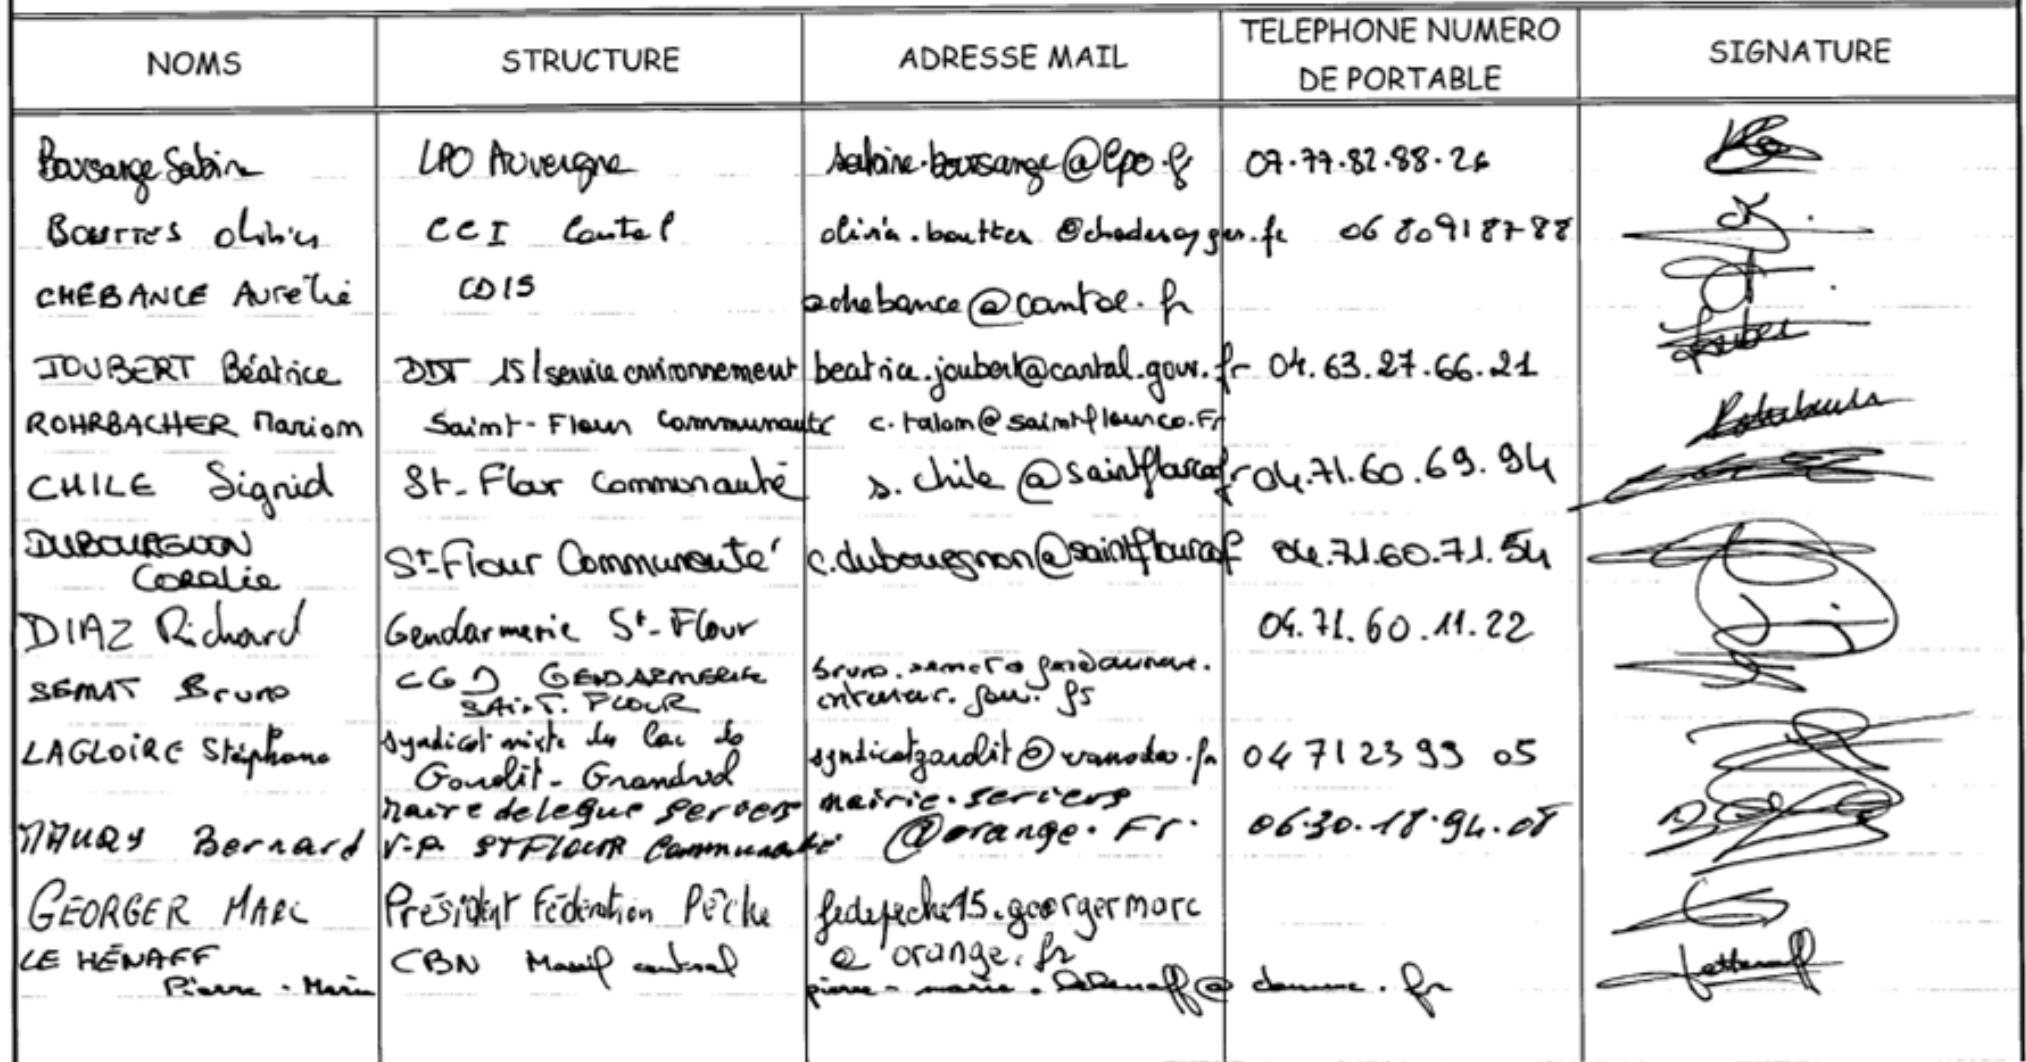 NOMS STRUCTURE ADRESSE MAIL TELEPHONE NUMERO DE PORTABLE SIGNATURE
Boursange Sabine LPO Auvergne sabine.boursange@lpo.fr 07.77.82.88.26
CCI Cantal 06 80918788
CHEBANCE Aurélie CD15 achebance@cantal.fr
JOUBERT Béatrice DDT 15/service environnement beatrice.joubert@cantal.gouv.fr 04.63.27.66.21
ROHRBACHER Marion Saint-Flour Communauté c.talon@saintflourco.Fr
CHILE Sigrid St-Flour Communauté s.chile@saintflourco.fr 04.71.60.69.94
DUBOURGNON
Coralie St Flour Communauté c.dubourgnon@saintflourco.f 04.71.60.71.54
DIAZ Richard Gendarmerie St-Flour 04.71.60.11.22
SEMAT Bruno CGD GENDARMERIE
SAINT. FLOUR
LAGLOIRE Stéphane Syndicat mixte du lac de
Garabit-Grandval syndicatgarabit@wanadoo.fr 04 71 23 93 05
MAURY Bernard maire delegue Seriers mairie.seriers
V.P. ST FLOUR Communauté @orange.Fr. 06.30.18.94.08
GEORGER MARC Président Fédération Pêche fedepeche15.georgermarc
@orange.fr
LE HÉNAFF
Pierre-Marie CBN Massif central